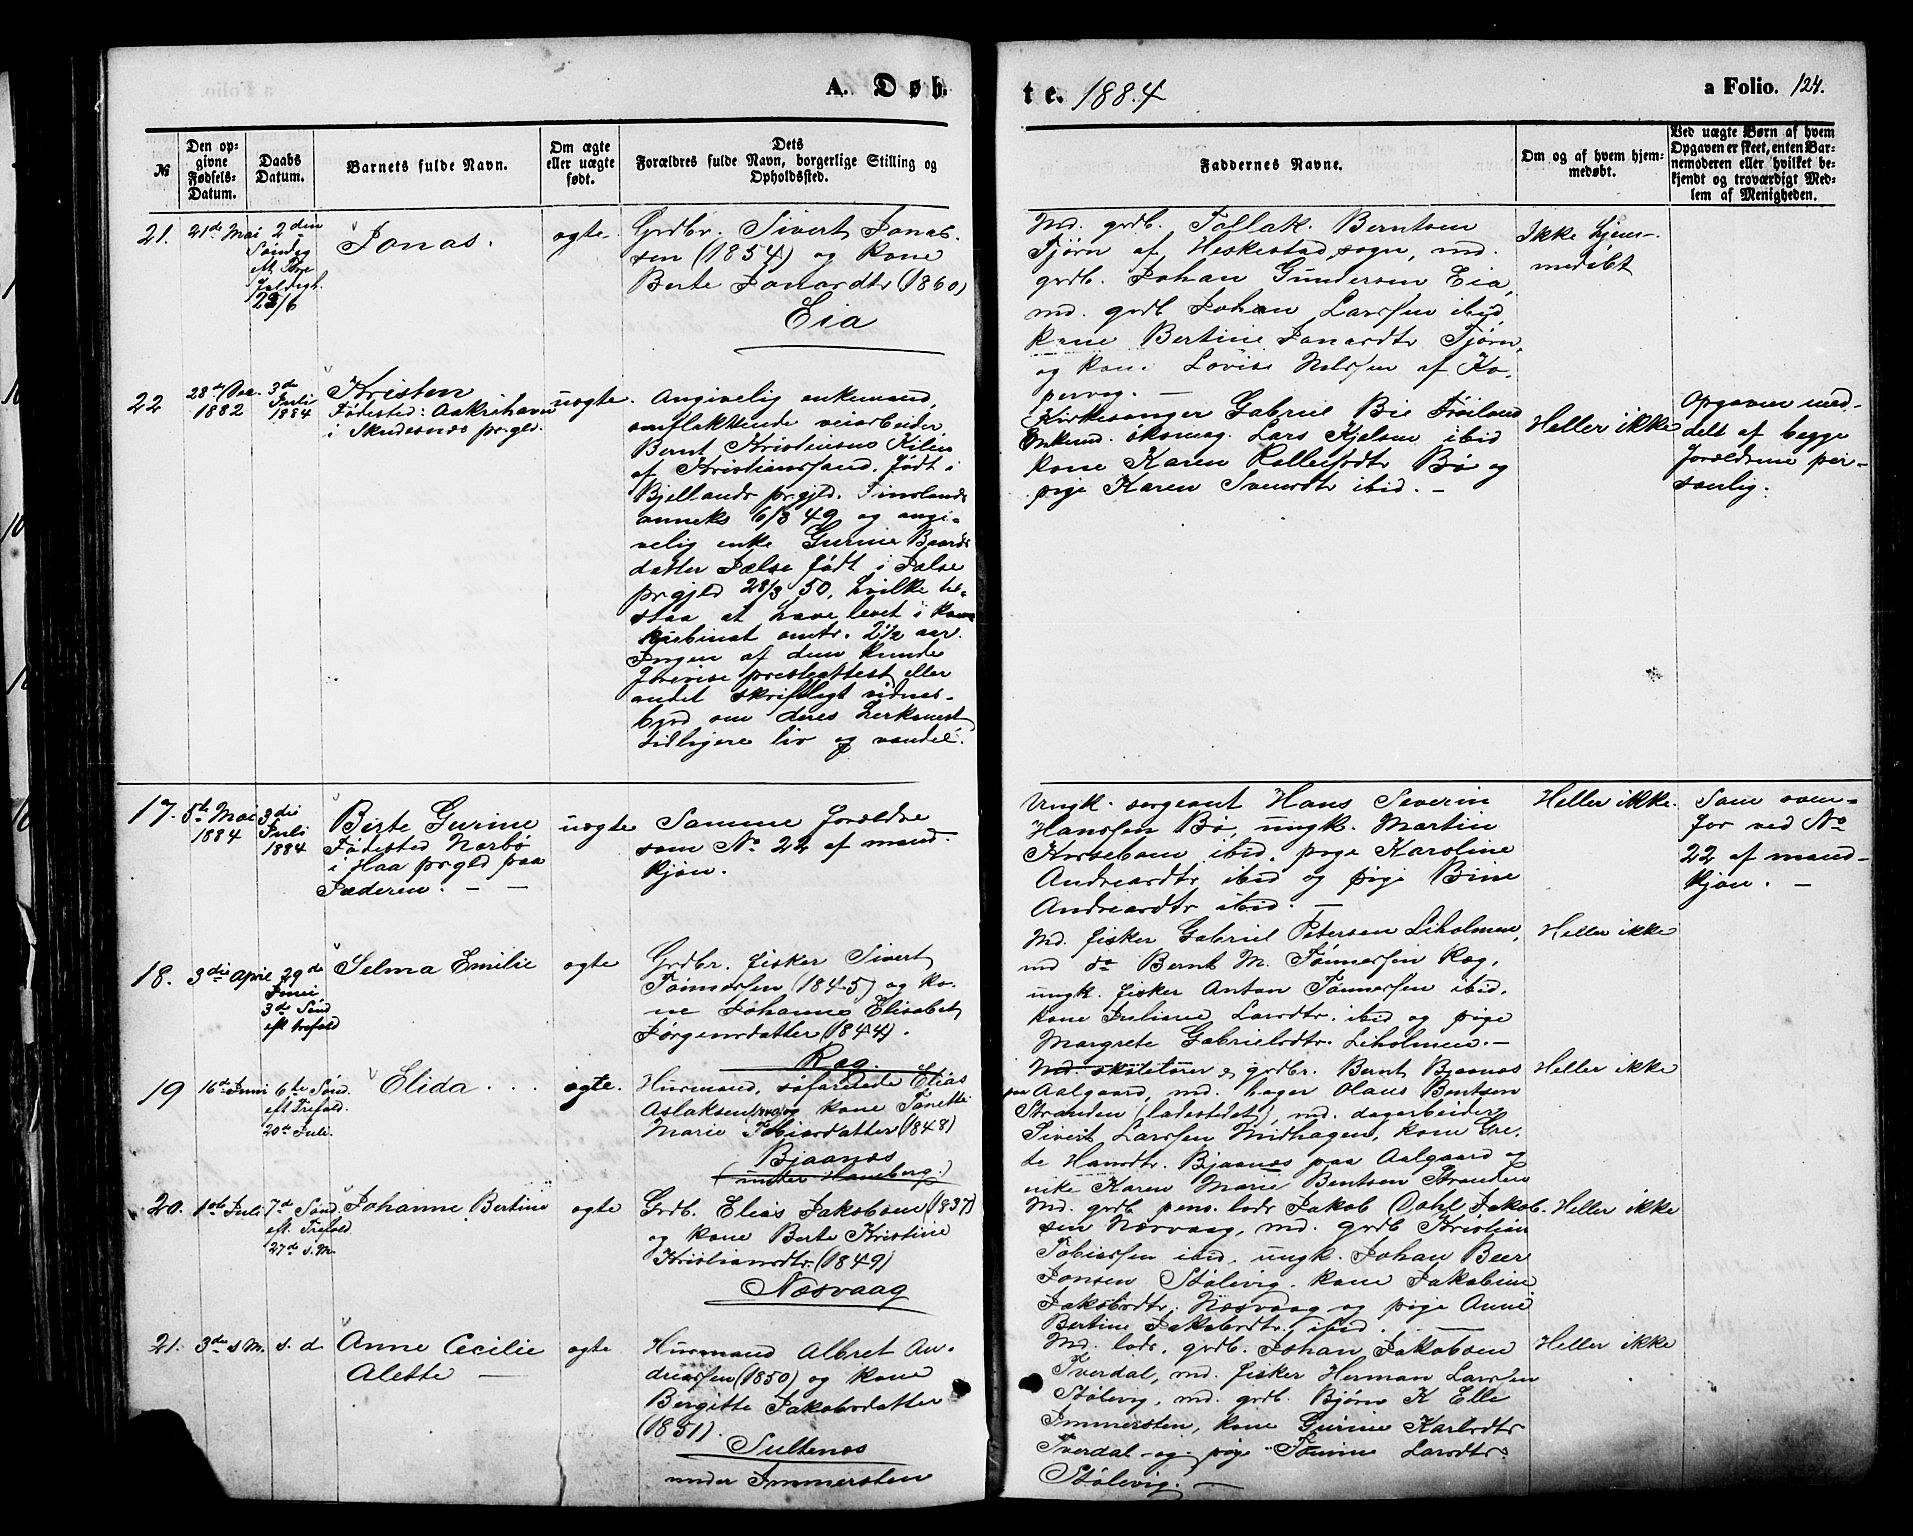 A. Døb
te. 1884
a Folio. 124.
№
Den op-
givne
Fødsels-
Datum.
Daabs
Datum.
Barnets fulde Navn.
Om ægte
eller uægte
født.
Dets
Forældres fulde Navn, borgerlige Stilling og
Opholdssted.
Faddernes Navne.
Om og af hvem hjem-
medøbt.
Ved uægte Børn af hvem
Opgaven er skeet, enten Bar-
nemoderen eller hvilket be-
kjendt og troværdigt Med-
lem af Menigheden.
21.
21de Mai
2den
Søndag
eft.
23/6
Jonas.
ægte
Grdbr. Sivert Jonas-
sen (1854) og kone
Berte Jonasdtr (1860)
Eia
Md. grdb. Tollak Berntsen
Tjørn af Heskestad sogn, md.
grdb. Johan Gundersen Eia,
md. grdb Johan Larssen ibid
kone Bertine Jonasdtr Tjørn,
og kone Lovise Nilssen af Ko-
pervag. —
Ikke hjem-
medøbt
22
28de Dec.
1882
3die
Juli
1884
Kristen
Fødested: Aakrehavn
i Skudesnæs prgld.
uægte.
Angivelig enkemand,
omflakkende veiarbeider
Bernt Kristiansen Kilen
af Kristianssand, født i
Bjellands prgjld. Finslands
anneks 6/3 49 og angi-
velig enke Gurine Baards
datter Jælse født i Jælse
prgjld 28/3 50, hvilke til-
staa at have levet i kon-
kubinat omtr. 2½ aar.
Ingen af dem kunde
forevise presteattest eller
andet skriftligt vidnes-
byrd om deres herkomst
tidligere liv og vandel.
Kirkesanger Gabriel Bie Frøiland
Enkem. øksmag. Lars Kjelsen ibid
kone Karen Rollefsdtr Bø og
pige Karen Svensdtr ibid. —
Heller ikke
Opgaven med-
delt af begge
forældrene per-
sonlig.
17.
5te Mai
1884
3die
Juli
1884
Berte Gurine
Fødested Nærbø
i Haa prgld paa
Jæderen. — —
uægte
Samme forældre
som No. 22 af mand-
kjøn.
Ungk. sergeant Hans Severin
Hanssen Bø, ungk. Martin
ibid, pige Karoline
Andreasdtr ibid og pige Bine
Andreasdtr ibid. —
Heller ikke.
Som oven-
for ved No
22 af mand-
kjøn. —
18.
3die April
29de
Juni
3die Sønd
eft trefold
Selma Emilie
ægte
Grdbr. fisker Sivert
Tønnessen (1845) og ko-
ne Johanne Elisabet
Jørgensdatter (1844).
Ræg.
Md. fisker Gabriel Petersen Liholmen,
md do Bernt M. Tønnessen Ræg,
ungk. fisker Anton Tønnessen ibid.
kone Juliane Larsdtr. ibid og pige
Margrete Gabrielsdtr. Liholmen. —
Heller ikke
19
16de Juni
6te Sønd.
eft Trefold.
20de Juli.
Elida . . .
ægte.
Husmand, søfarende Elias
Aslaksen og kone Tonette
Marie Tobiasdatter (1848)
Bjaanæs
(under Haneberg.)
Md. grdbr. Bernt Bjaanæs
paa Aalgaard, md. bager Olaus Bentsen
Stranden (ladestedet), md. dagarbeider
Sivert Larssen Midhagen, kone Gre-
te Hansdtr. Bjaanæs paa Aalgaard og
enke Karen Marie Bentsen Stranden
Heller ikke
20.
1ste Juli
7de Sønd.
eft. Trefold
27de s. M.
Johanne Bertine
ægte
Grdb. Elias Jakobsen (1837)
og kone Berte Kristine
Kristiansdtr. (1849)
Næsvaag
Md. grdb. pens. lods Jakob Dahl Jakob-
sen Næsvaag, md. grdb Kristian
Tobiassen ibid. ungk. Johan Beer
Jonsen Stølevig. kone Jakobine
Jakobsdtr. Næsvaag og pige Anne
Bertine Jakobsdtr. ibid. —
Heller ikke
21.
3die s. M.
s. d
Anne Cecilie
Alette —
ægte
Husmand Albret An-
dreassen (1850) og kone
Bergitte Jakobsdatter
(1851).
Sultenæs
under Immersten
Md. lods, grdb. Johan Jakobsen
Tverdal, md. fisker Herman Larssen
Stølevig, md. grdb. Bjørn K Elle
Immersten, kone Gurine Karlsdtr
Tverdal og pige Tomine Larsdtr
Stølevig. —
Heller ikke